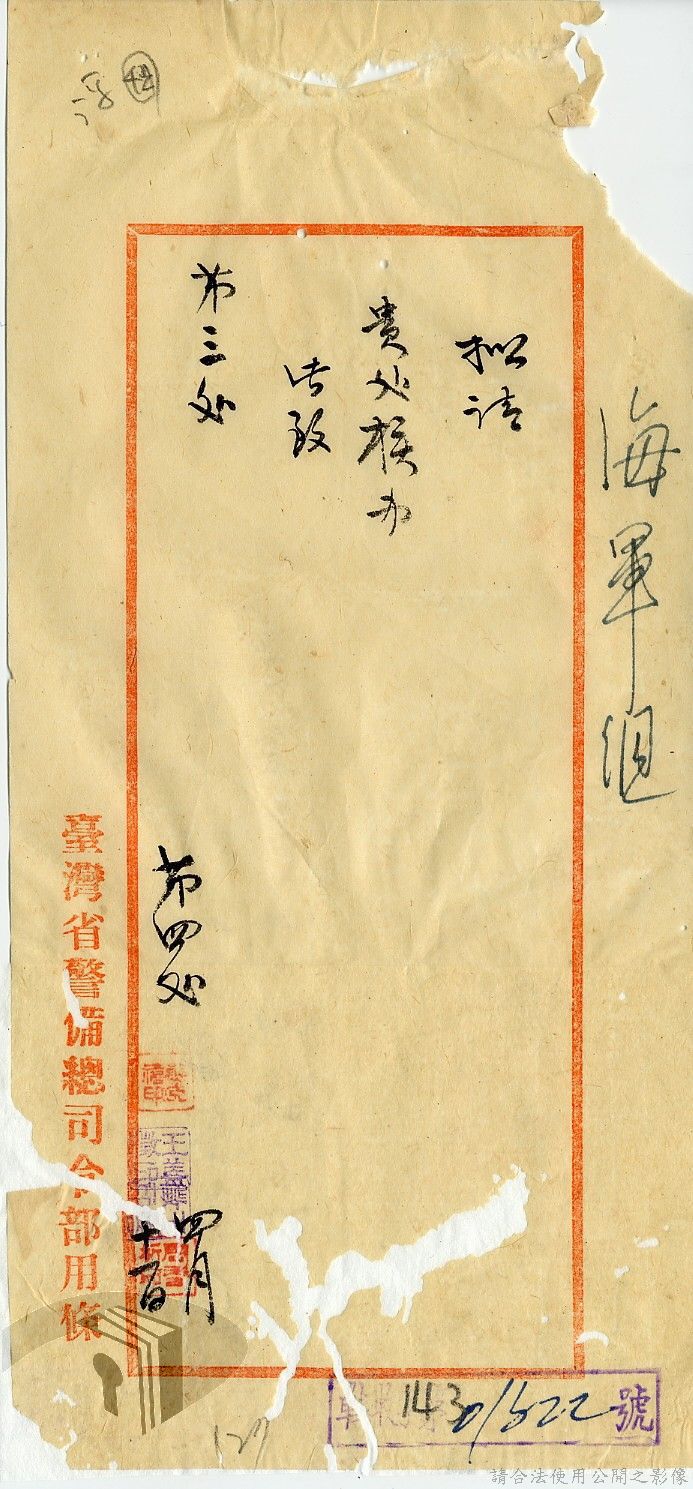 海軍組
擬请
貴处核办
此致
第三处
第四处
四月
十一日
臺灣省警備總司令部用條
143
01522
號
127
請合法使用公開之影像